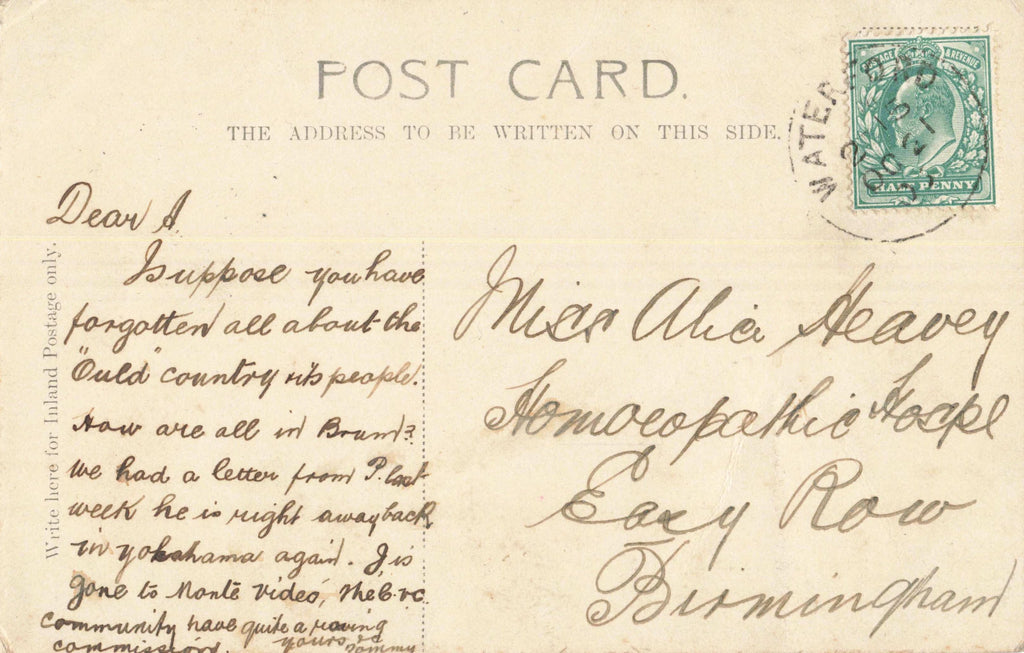 POST CARD.
THE ADDRESS TO BE WRITTEN ON THIS SIDE.
POSTAGE & REVENUE
HALF PENNY
WATERFORD
Write here for Inland Postage only.
Dear A
I suppose you have
forgotten all about the
"Ould" country & its people.
How are all in Brum?
We had a letter from P. last
week he is right away back
in yokahama again. J. is
gone to Monte video, The
community have quite a roving
commission. yours &c
Tommy
Miss Alice Heavey
Homoeopathic Hospl
Easy Row
Birmingham